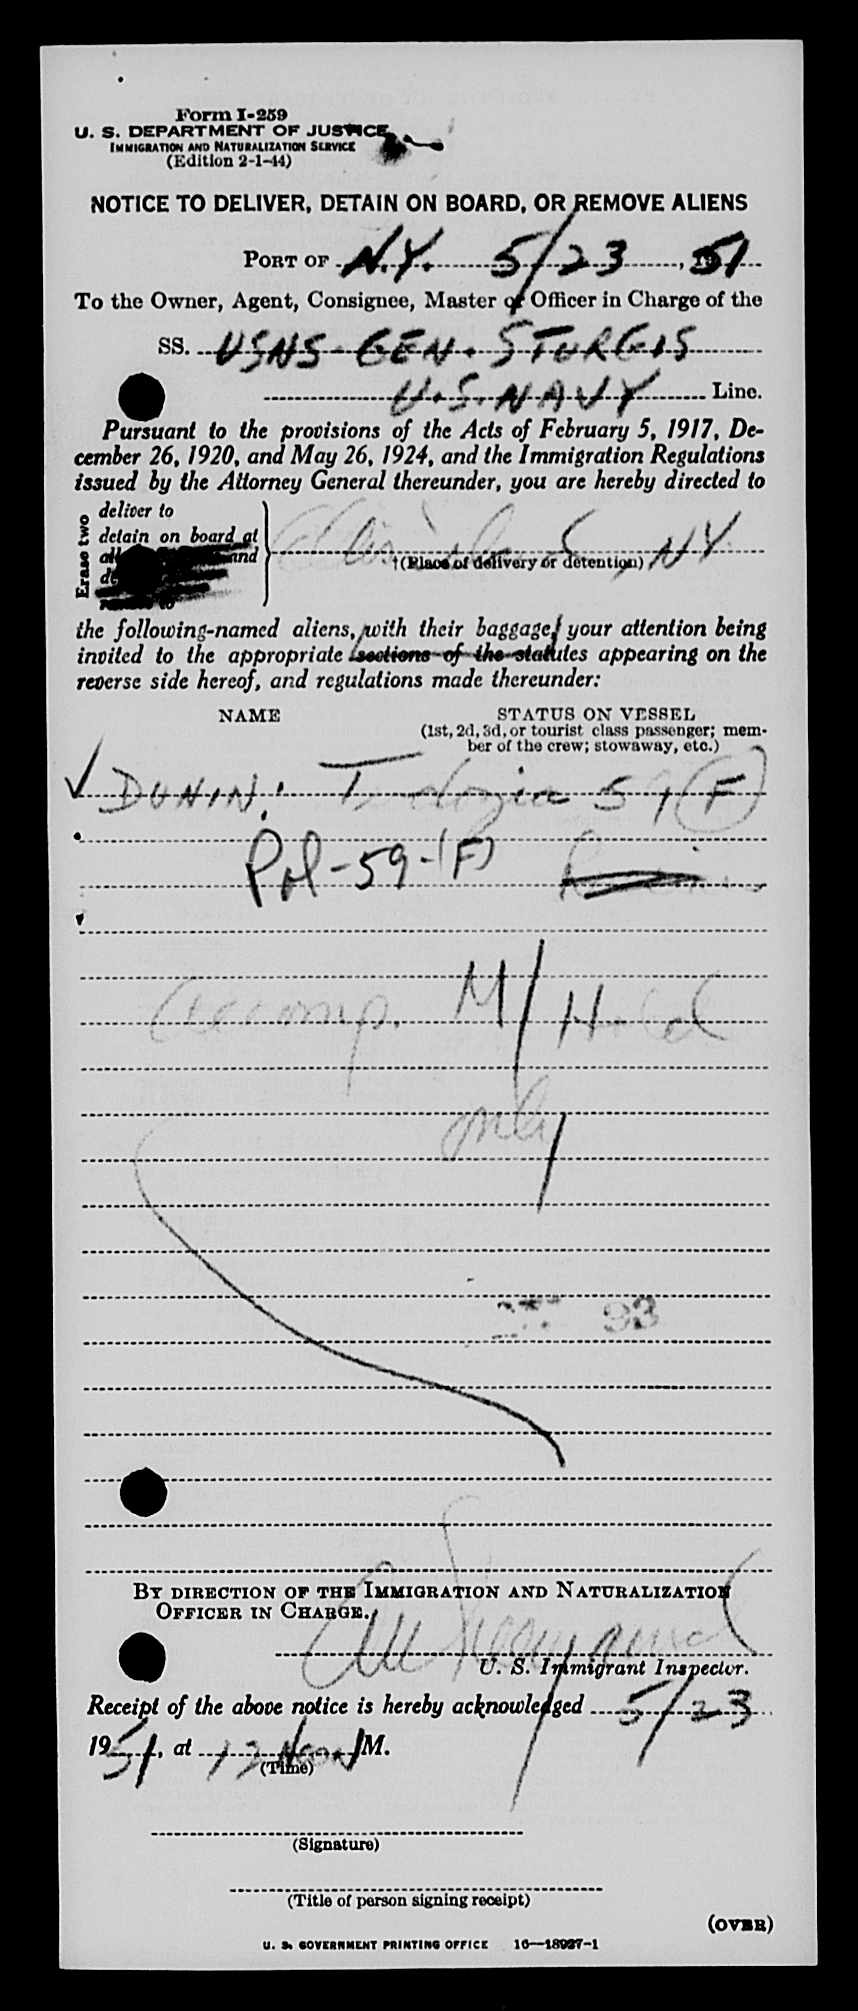 Form I-259
U. S. DEPARTMENT OF JUSTICE
IMMIGRATION AND NATURALIZATION SERVICE
(Edition 2-1-44)
NOTICE TO DELIVER, DETAIN ON BOARD, OR REMOVE ALIENS
PORT OF N.Y. 5/23, 1951
To the Owner, Agent, Consignee, Master or Officer in Charge of the
SS. USNS GEN. STURGIS
U.S. NAVY Line.
Pursuant to the provisions of the Acts of February 5, 1917, De-
cember 26, 1920, and May 26, 1924, and the Immigration Regulations
issued by the Attorney General thereunder, you are hereby directed to
Erase two
deliver to
detain on board at
and
NY
†(Place of delivery or detention)
the following-named aliens, with their baggage, your attention being
invited to the appropriate sections of the statutes appearing on the
reverse side hereof, and regulations made thereunder:
NAME STATUS ON VESSEL
(1st, 2d, 3d, or tourist class passenger; mem-
ber of the crew; stowaway, etc.)
✓ DUNIN: Teodozia 59 (F)
Pol-59-(F)
accomp. M/Hold
only
93
BY DIRECTION OF THE IMMIGRATION AND NATURALIZATION
OFFICER IN CHARGE.
U. S. Immigrant Inspector.
Receipt of the above notice is hereby acknowledged 5/23
1951, at 12 Noon M.
(Time)
(Signature)
(Title of person signing receipt)
(OVER)
U. S. GOVERNMENT PRINTING OFFICE 16—18927-1